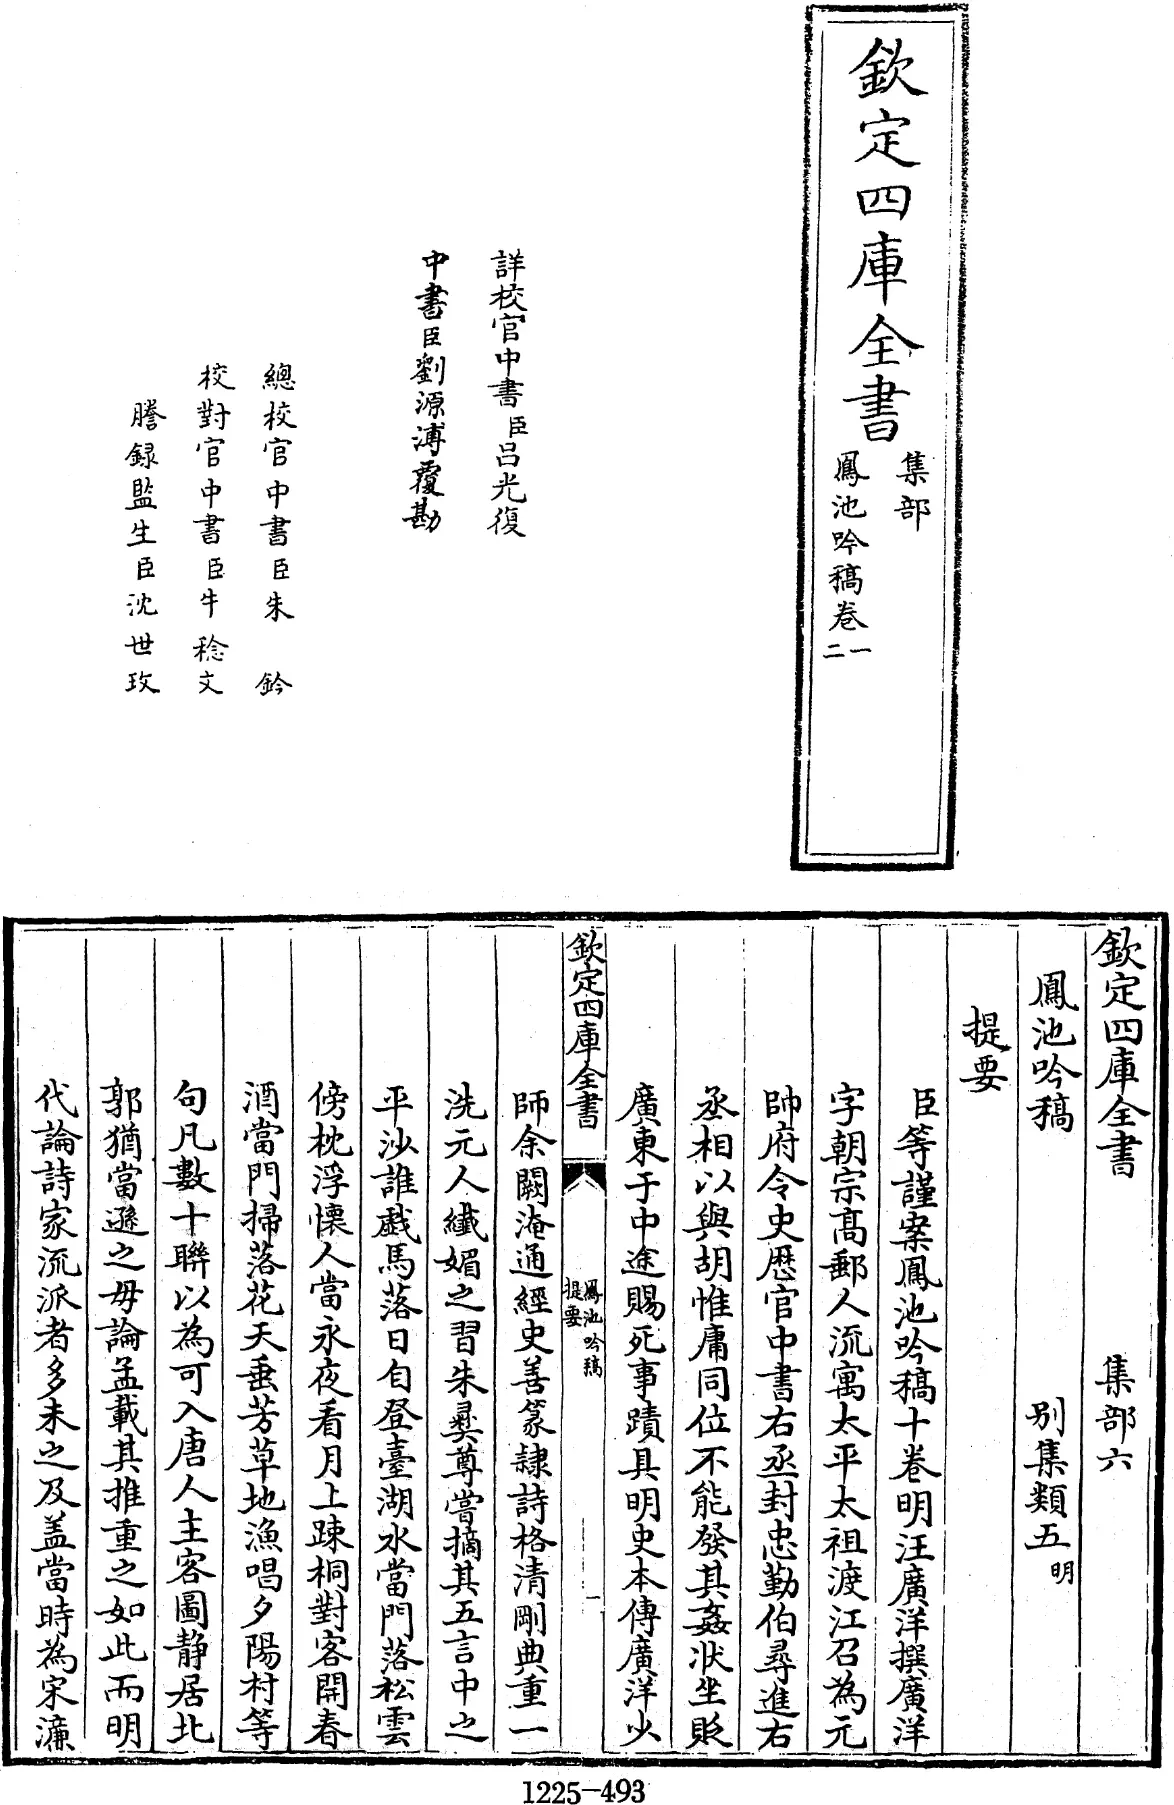 欽定四庫全書
集部
鳳池吟稿卷一
二
詳校官中書臣呂光復
中書臣劉源溥覆勘
總校官中書臣朱鈐
校對官中書臣牛稔文
謄録監生臣沈世玫
欽定四庫全書　集部六
鳳池吟稿　別集類五明
提要
臣等謹案鳳池吟稿十卷明汪廣洋撰廣洋
字朝宗髙郵人流寓太平太祖渡江召為元
帥府令史歴官中書右丞封忠勤伯尋進右
丞相以與胡惟庸同位不能發其姦狀坐貶
廣東于中途賜死事蹟具明史本傳廣洋少
欽定四庫全書
鳳池吟稿
提要
一
師余闕淹通經史善篆隷詩格清剛典重一
洗元人纎媚之習朱彞尊嘗摘其五言中之
平沙誰戯馬落日自登臺湖水當門落松雲
傍枕浮懷人當永夜看月上踈桐對客開春
酒當門掃落花天垂芳草地漁唱夕陽村等
句凡數十聯以為可入唐人主客圖靜居北
郭猶當遜之毋論孟載其推重之如此而明
代論詩家流派者多未之及盖當時為宋濂
1225-493